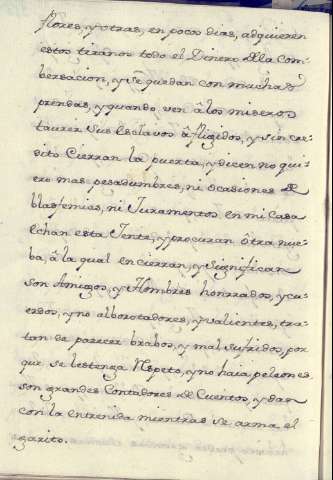 flores, y otras, en pocos dias, adquieren
estos tiranos todo el Dinero de la Com-
bersacion, y se quedan con muchas
prendas, y quando ven â los miseros
taures sus Esclavos afligidos, y sin cre-
dito Cierran la puerta, y dicen no qui-
ero mas pesadumbres, ni ocasiones de
blasfemias, ni Juramentos en mi Casa
echan esta Jente, y procuran ôtra nue-
ba, â la qual encierran, y Significan
son Amigos, y Hombres honrrados, y cu-
erdos, y no alborotadores, y valientes, tra-
tan de parecer brabos, y mal sufridos, por
que se les tenga Respeto, y no haia peleones.
son grandes Contadores de Cuentos, y dan
con la entrenida mientras se arma el
garito.